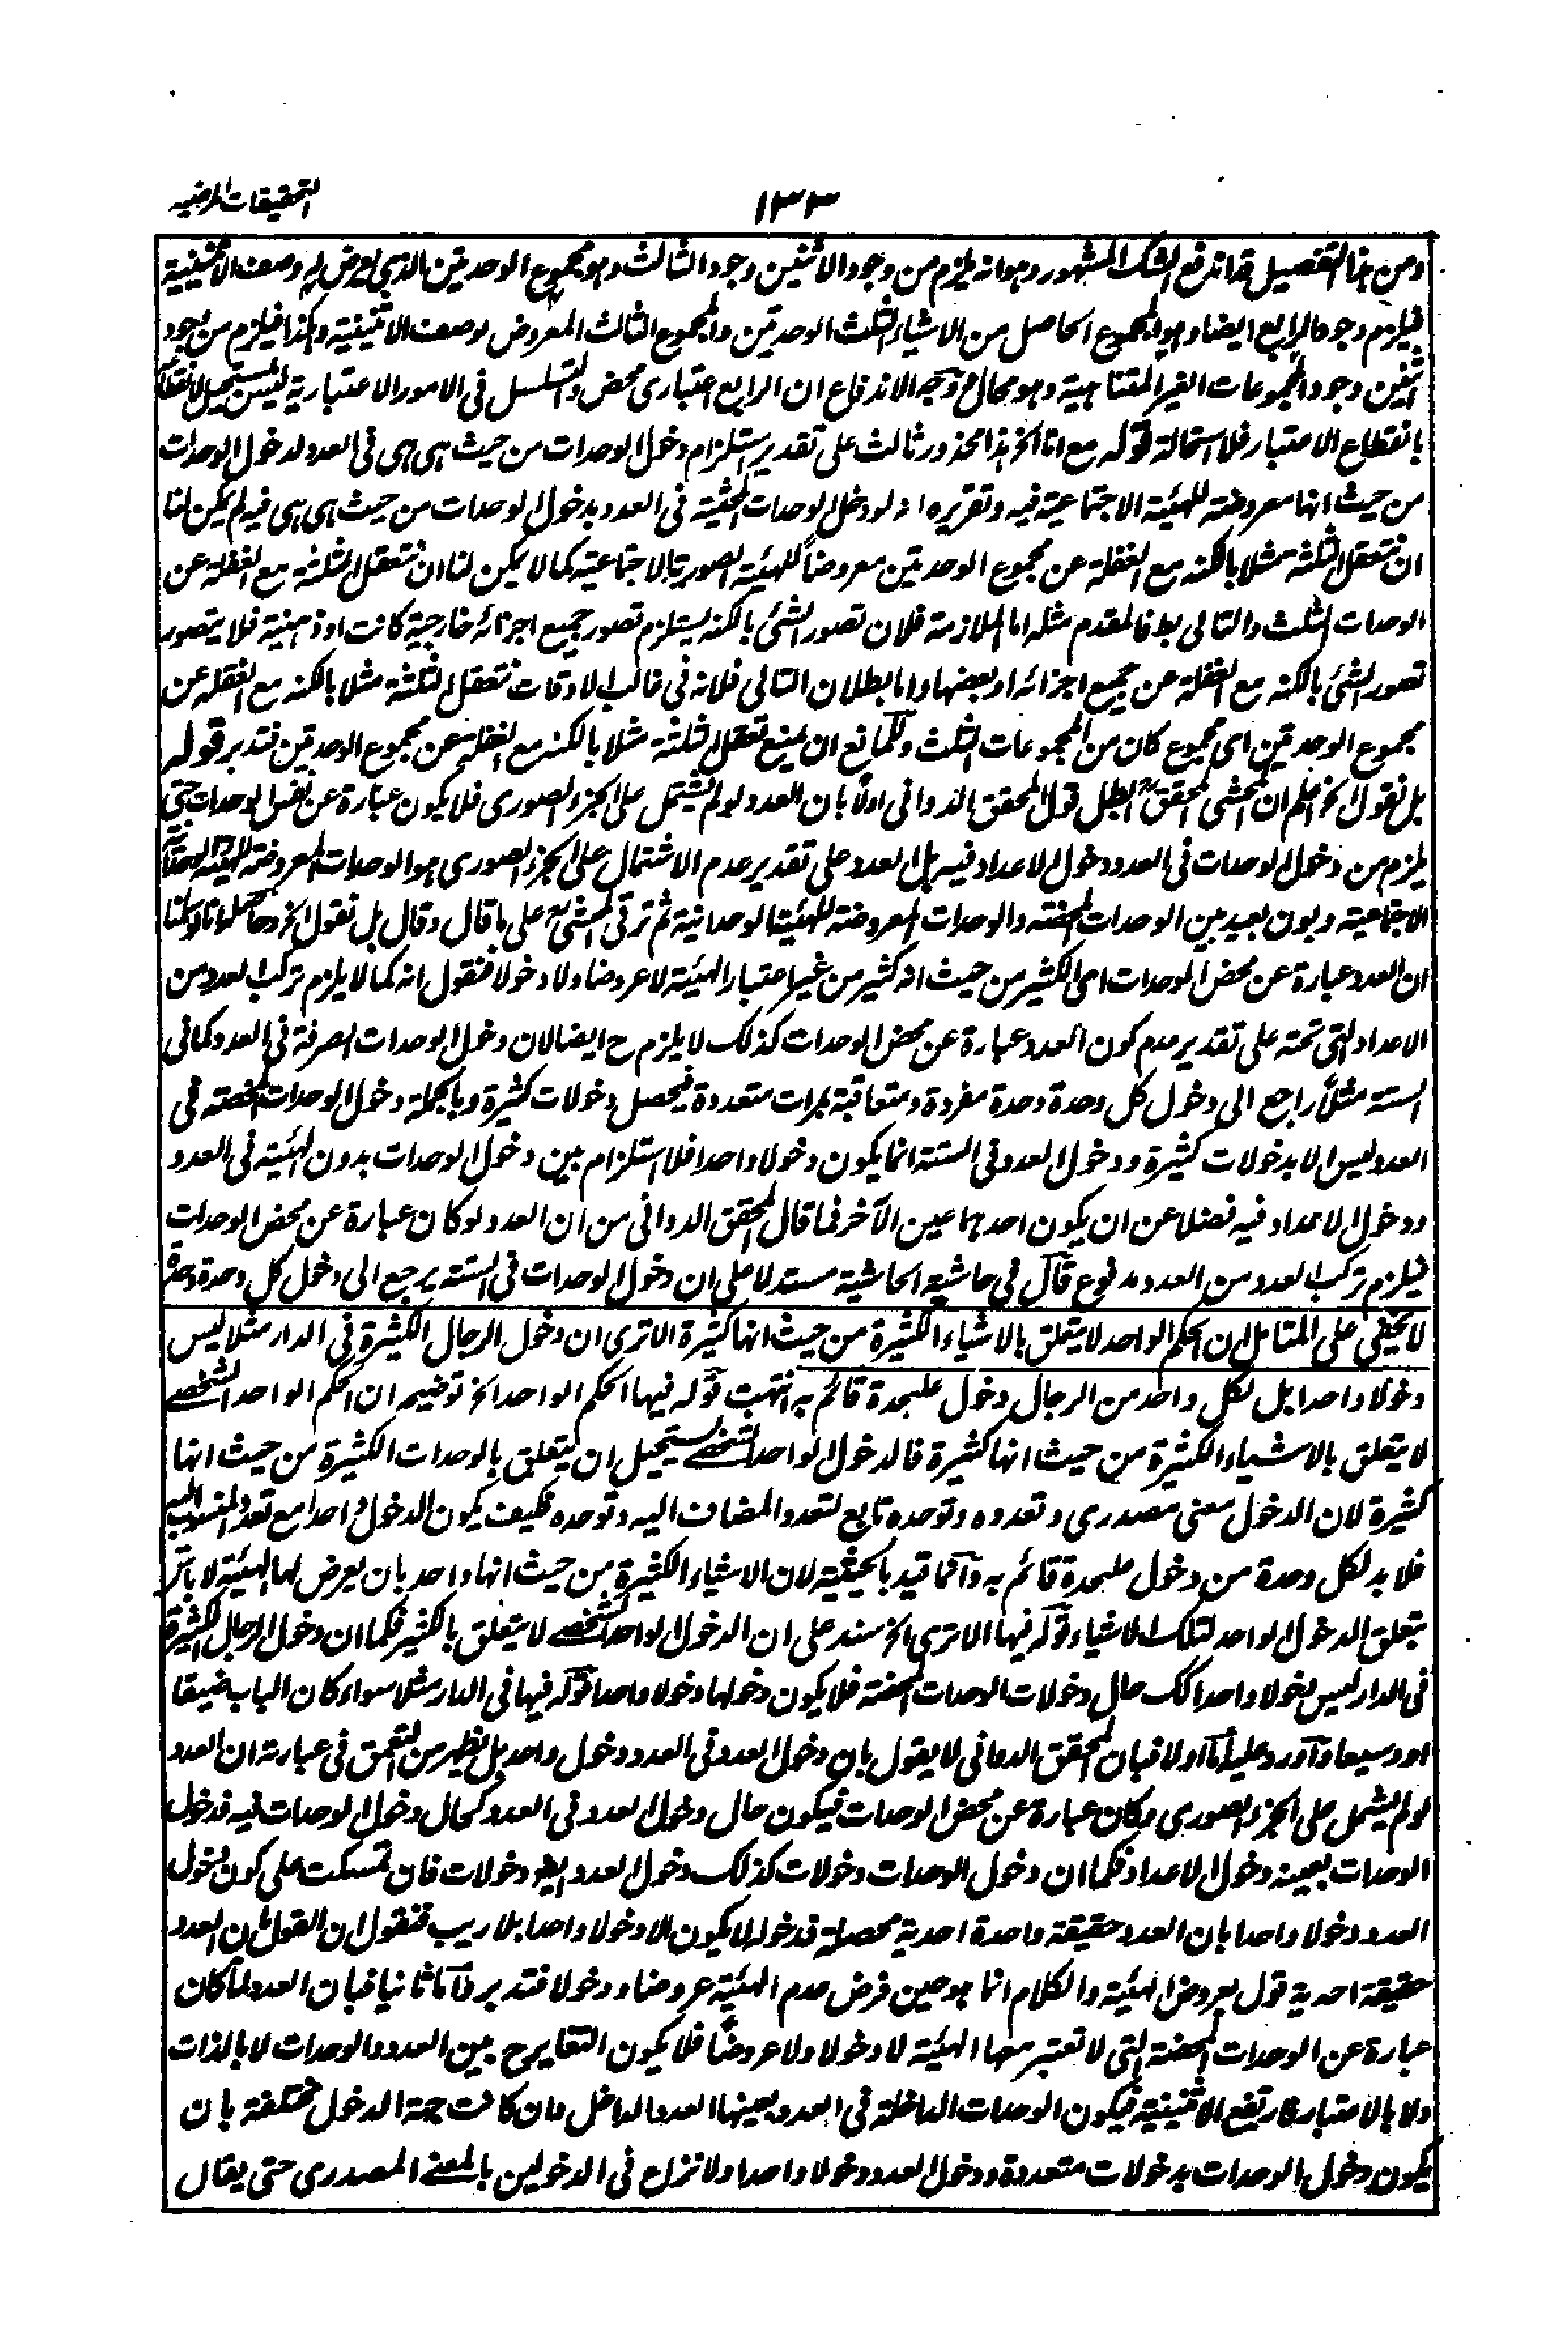 التحقيقات المرضيه
١٣٣
ومن هذا التفصيل قد اندفع الشك المشهور وهو انه يلزم من وجود الاثنين وجود الثالث وهو مجموع الوحدتين الذي يعرض له وصف الاثنينية
فيلزم وجود الرابع ايضا وهو المجموع الحاصل من الاشياء الثلث الوحدتين والمجموع الثالث المعروض لوصف الاثنينية وهكذا فيلزم من وجود
اثنين وجود المجموعات الغير المتناهية وهو محال وجه الاندفاع ان الرابع اعتباري محض والتسلسل في الامور الاعتبارية ليس بمستحيل لانقطاعه
بانقطاع الاعتبار فلا استحالة قوله مع انا الخ هذا محذور ثالث على تقدير استلزام دخول الوحدات من حيث هي هي في العدد لدخول الوحدات
من حيث انها معروضة للهيئة الاجتماعية فيه وتقريره انه لو دخل الوحدات المحيثية في العدد بدخول الوحدات من حيث هي هي فيه لم يمكن لنا
ان نتعقل الثلثة مثلا بالكنه مع الغفلة عن مجموع الوحدتين معروضاً للهيئة الصورية الاجتماعية كما لا يمكن لنا ان نتعقل الثلثة مع الغفلة عن
الوحدات الثلث والتالي بط فالمقدم مثله اما الملازمة فلان تصور الشئ بالكنه يستلزم تصور جميع اجزائه خارجية كانت او ذهنية فلا يتصور
تصور الشئ بالكنه مع الغفلة عن جميع اجزائه او بعضها واما بطلان التالي فلانه في غالب الاوقات نتعقل الثلثة مثلا بالكنه مع الغفلة عن
مجموع الوحدتين اى مجموع كان من المجموعات الثلث وللمانع ان يمنع تعقل الثلثة مثلا بالكنه مع الغفلة عن مجموع الوحدتين فتدبر قوله
بل نقول الخ اعلم ان المحشى المحقق ابطل قول المحقق الدواني اولا بان العدد لو لم يشتمل على الجزء الصوري فلا يكون عبارة عن نفس الوحدات حتى
يلزم من دخول الوحدات في العدد دخول الاعداد فيه بل العدد على تقدير عدم الاشتمال على الجزء الصوري هو الوحدات المعروضة للهيئة
الاجتماعية وبون بعيد بين الوحدات المحضة والوحدات المعروضة للهيئة الوحدانية ثم ترقى المحشى على ما قال وقال بل نقول الخ وحاصله انا لو سلمنا
ان العدد عبارة عن محض الوحدات اى الكثير من حيث انه كثير من غير اعتبار الهيئة لا عروضا ولا دخولا فنقول انه كما لا يلزم تركب العدد من
الاعداد التي تحته على تقدير عدم كون العدد عبارة عن محض الوحدات كذلك لا يلزم ح ايضا لان دخول الوحدات الصرفة في العدد كما في
الستة مثلاً راجع الى دخول كل وحدة وحدة مفردة ومتعاقبة بمرات متعددة فيحصل دخولات كثيرة وبالجملة دخول الوحدات المحضة في
العدد ليس الا بدخولات كثيرة ودخول العدد في الستة انما يكون دخولا واحدا فلا استلزام بين دخول الوحدات بدون الهيئة في العدد
ودخول الاعداد فيه فضلا عن ان يكون احدهما عين الآخر فما قال المحقق الدواني من ان العدد لو كان عبارة عن محض الوحدات
فيلزم تركب العدد من العدد مدفوع قال في حاشية الحاشية مستدلا على ان دخول الوحدات في الستة يرجع الى دخول كل وحدة وحدة
لا يخفى على المتامل ان الحكم الواحد لا يتعلق بالاشياء الكثيرة من حيث انها كثيرة الا ترى ان دخول الرجال الكثيرة في الدار مثلا ليس
دخولا واحدا بل لكل واحد من الرجال دخول عليحدة قائم به انتهت قوله فيها الحكم الواحد الخ توضيحه ان الحكم الواحد الشخصي
لا يتعلق بالاشياء الكثيرة من حيث انها كثيرة فالدخول الواحد الشخصي يستحيل ان يتعلق بالوحدات الكثيرة من حيث انها
كثيرة لان الدخول معنى مصدري وتعدده وتوحده تابع لتعدد المضاف اليه وتوحده فكيف يكون الدخول واحدا مع تعدد المنسوب اليه
فلا بد لكل وحدة من دخول عليحدة قائم به وانما قيد بالحيثية لان الاشياء الكثيرة من حيث انها واحد بان يعرض لها الهيئة لا باس
بتعلق الدخول الواحد لتلك الاشياء قوله فيها الا ترى الخ سند على ان الدخول الواحد الشخصي لا يتعلق بالكثير فكما ان دخول الرجال الكثيرة
في الدار ليس دخولا واحدا كك حال دخولات الوحدات المحضة فلا يكون دخولها دخولا واحدا قوله فيها في الدار مثلا سواء كان الباب ضيقا
او وسيعا واورد عليه اما اولا فبان المحقق الدواني لا يقول بان دخول العدد في العدد دخول واحد بل يظهر من التعمق في عبارته ان العدد
لو لم يشمل على الجزء الصوري وكان عبارة عن محض الوحدات فيكون حال دخول العدد في العدد كحال دخول الوحدات فيه فدخول
الوحدات بعينه دخول الاعداد فكما ان دخول الوحدات دخولات كذلك دخول العدد ايضا دخولات فان تمسكت على كون دخول
العدد دخولا واحدا بان العدد حقيقة واحدة احدية محصلة فدخوله لا يكون الا دخولا واحدا بلا ريب فنقول ان القول بان العدد
حقيقة احدية قول بعروض الهيئة والكلام انما هو حين فرض عدم الهيئة عروضا ودخولا فتدبر واما ثانيا فبان العدد لما كان
عبارة عن الوحدات المحضة التي لا تعتبر معها الهيئة لا دخولا ولا عروضاً فلا يكون التغاير ح بين العدد والوحدات لا بالذات
ولا بالاعتبار فارتفع الاثنينية فيكون الوحدات الداخلة في العدد بعينها العدد الداخل وان كانت جهة الدخول مختلفة بان
يكون دخول الوحدات بدخولات متعددة ودخول العدد دخولا واحدا ولا نزاع في الدخولين بالمعنى المصدري حتى يقال